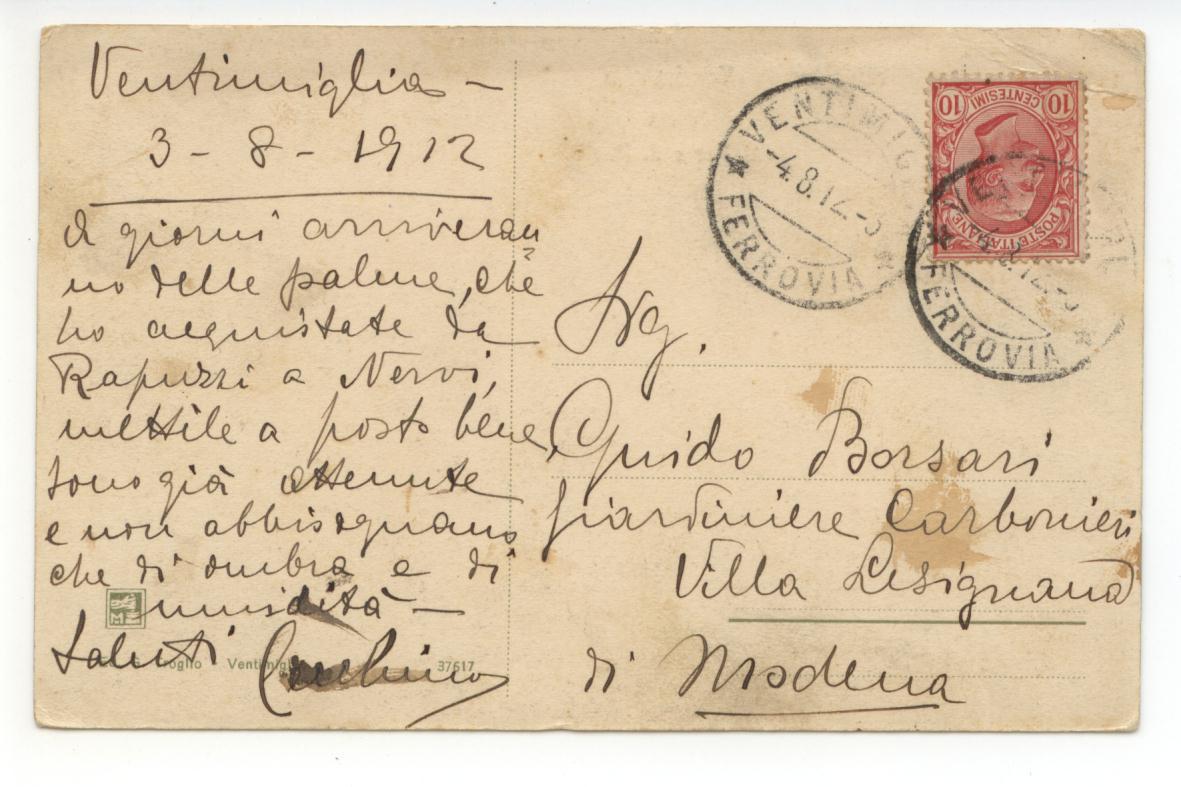 Ventimiglia -
3 - 8 - 1912
giorni arriveran
no delle palme, che
ho acquistate da
Rapuzzi a Nervi,
mettile a posto bene,
sono già attenute
e non abbisognano
che di ombra e di
umidità -
Saluti
oglio Ventimigl 37617
VENTIMIG
-4.8.12.-
* FERROVIA *
10 CENTESIMI 10
POSTE ITALIANE
* FERROVIA *
Sig.
Guido Borsari
Giardiniere Carbonieri
Villa Lesignana
di Modena